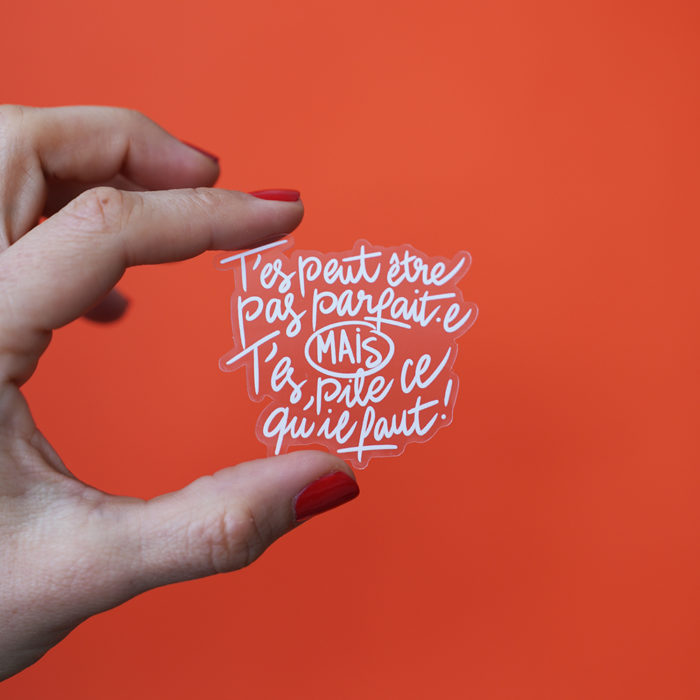 T'es peut être
pas parfait·e
MAIS
T'es pile ce
qu'il faut!